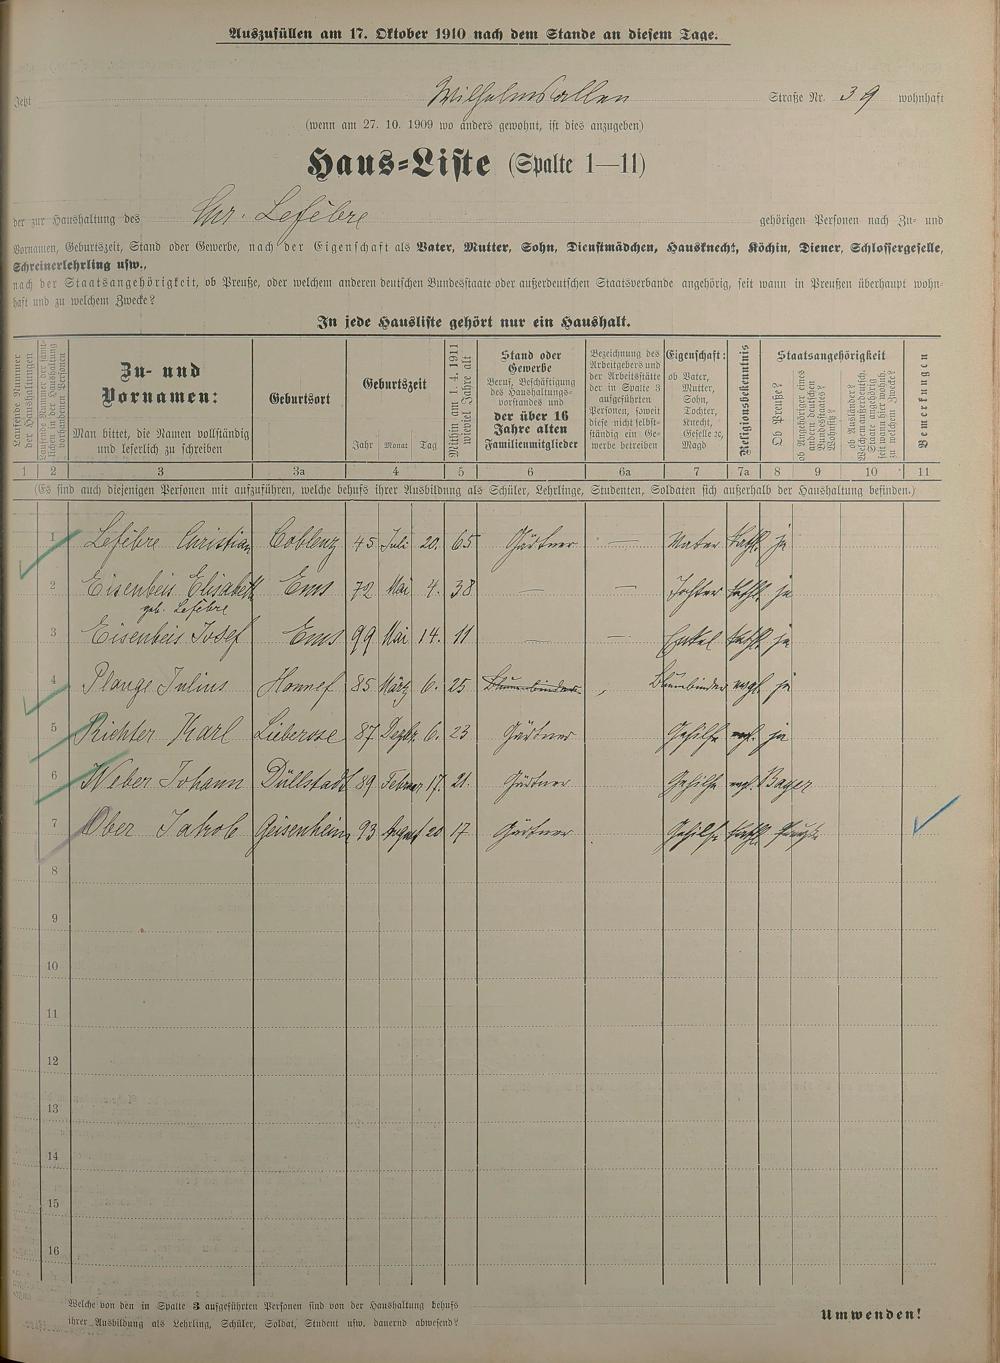 Auszufüllen am 17. Oktober 1910 nach dem Stande an diesem Tage.
Jetzt Wilhelmsallen Straße Nr. 39 wohnhaft
(wenn am 27. 10. 1909 wo anders gewohnt, ist dies anzugeben)
Haus-Liste (Spalte 1—11)
der zur Haushaltung des Chr. Lefébre gehörigen Personen nach Zu- und
Vornamen, Geburtszeit, Stand oder Gewerbe, nach der Eigenschaft als Vater, Mutter, Sohn, Dienstmädchen, Hausknecht, Köchin, Diener, Schlossergeselle,
Schreinerlehrling usw.,
nach der Staatsangehörigkeit, ob Preuße, oder welchem anderen deutschen Bundesstaate oder außerdeutschen Staatsverbande angehörig, seit wann in Preußen überhaupt wohn-
haft und zu welchem Zwecke?
In jede Hausliste gehört nur ein Haushalt.
Laufende Nummer der Haushaltungen
Laufende Nummer der sämt-
lichen in der Haushaltung
vorhandenen Personen
Zu- und
Vornamen:
Man bittet, die Namen vollständig
und leserlich zu schreiben
Geburtsort
Geburtszeit
Jahr Monat Tag
Mithin am 1. 4. 1911
wieviel Jahre alt
Stand oder
Gewerbe
Beruf, Beschäftigung
des Haushaltungs-
vorstandes und
der über 16
Jahre alten
Familienmitglieder
Bezeichnung des
Arbeitgebers und
der Arbeitsstätte
der in Spalte 3
aufgeführten
Personen, soweit
diese nicht selbst-
ständig ein Ge-
werbe betreiben
Eigenschaft:
ob Vater,
Mutter,
Sohn,
Tochter,
Knecht,
Geselle ꝛc,
Magd
Religionsbekenntnis
Staatsangehörigkeit
Ob Preuße?
ob Angehöriger eines
andern deutschen
Bundesstaates?
Wohnsitz?
ob Ausländer?
Welchem außerdeutsch.
Staate angehörig
seit wann hier wohnh.
zu welchem Zwecke?
Bemerkungen
1 2 3 3a 4 5 6 6a 7 7a 8 9 10 11
(Es sind auch diejenigen Personen mit aufzuführen, welche behufs ihrer Ausbildung als Schüler, Lehrlinge, Studenten, Soldaten sich außerhalb der Haushaltung befinden.)
1 Lefébre Christian Coblenz 45 Juli 20. 65 Gärtner — Vater kathl. ja
2 Eisenbeis Elisabeth Ems 72 Mai 4. 38 — — Tochter kathl. ja
geb. Lefébre
3 Eisenbeis Josef Ems 99 Mai 14. 11 — — Enkel kathl. ja
4 Plange Julius Honnef 85 März 6. 25 Blumenbinder Blumbinder evgl. ja
5 Richter Karl Lieberose 87 Dezbr. 6. 23 Gärtner Gehilfe evgl. ja
6 Weber Johann Düllstadt 89 Februar 17. 21. Gärtner Gehilfe evgl. Bayer
7 Ober Jakob Geisenheim 93 August 20 17 Gärtner Gehilfe kathl.
8
9
10
11
12
13
14
15
16
Welche von den in Spalte 3 aufgeführten Personen sind von der Haushaltung behufs
ihrer Ausbildung als Lehrling, Schüler, Soldat, Student usw. dauernd abwesend?
Umwenden!